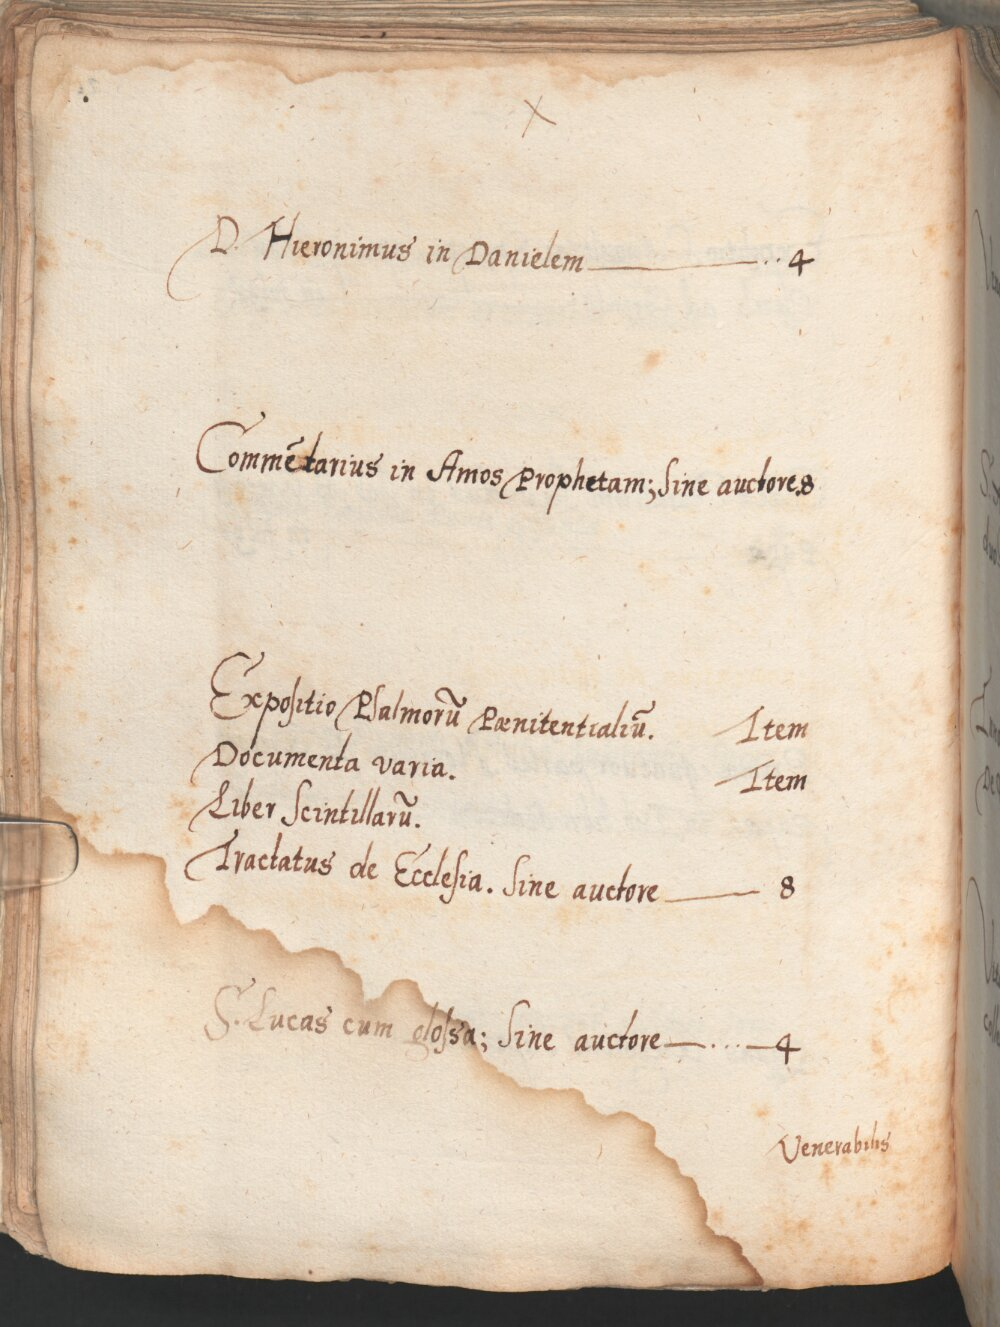 D. Hieronimus in Danielem ——— .. 4
Commētarius in Amos Prophetam; Sine auctore. 8
Expositio Psalmorū Pænitentialiū. Item
Documenta varia. Item
Liber Scintillarū.
Tractatus de Ecclesia. Sine auctore —— 8
S. Lucas cum glossa; Sine auctore — ... — 4
Venerabilis